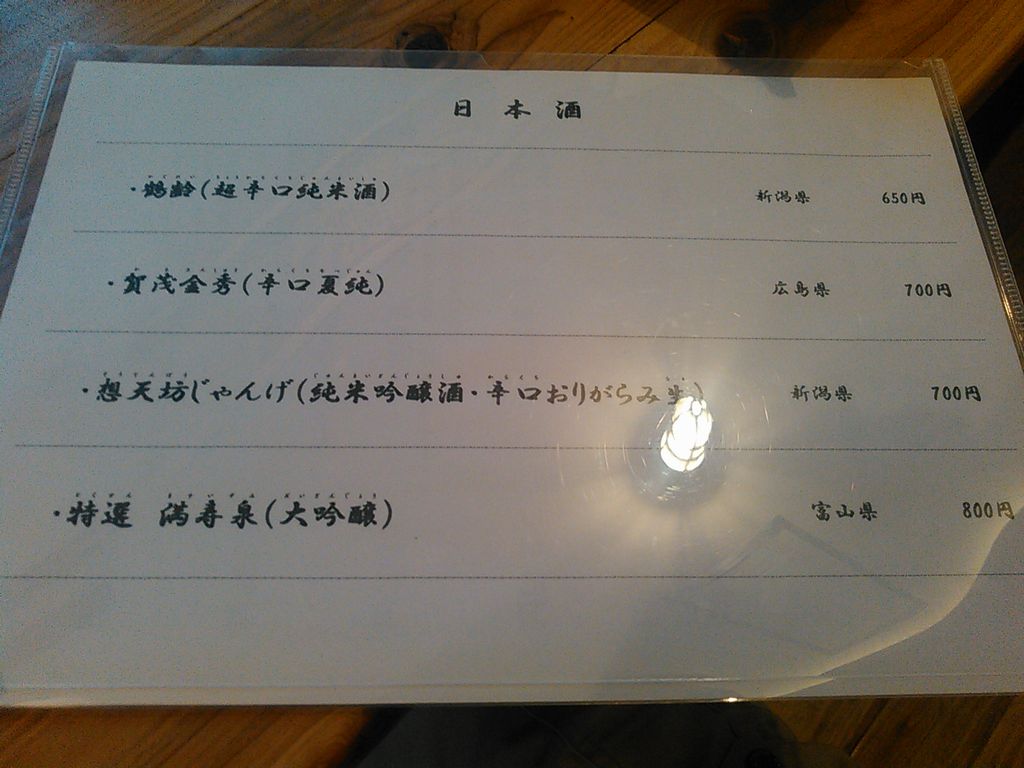 日本酒
・鶴齢(超辛口純米酒) 新潟県 650円
・賀茂金秀(辛口夏純) 広島県 700円
・想天坊じゃんげ(純米吟醸酒・辛口おりがらみ生) 新潟県 700円
・特選 満寿泉(大吟醸) 富山県 800円